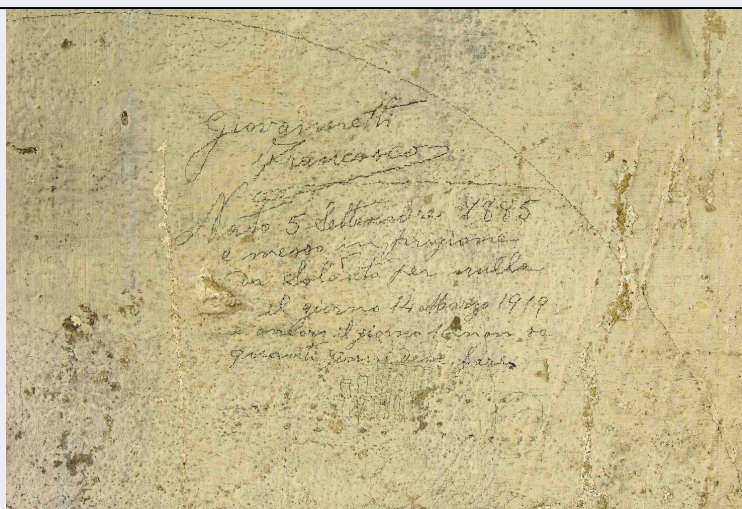 Giovannetti
Francesco
Nato 5 Settembre 1885
e messo in prigione
da Soldato per nulla
il giorno 14 Marzo 1919
e il giorno 16 non so
quanti giorni devo fare